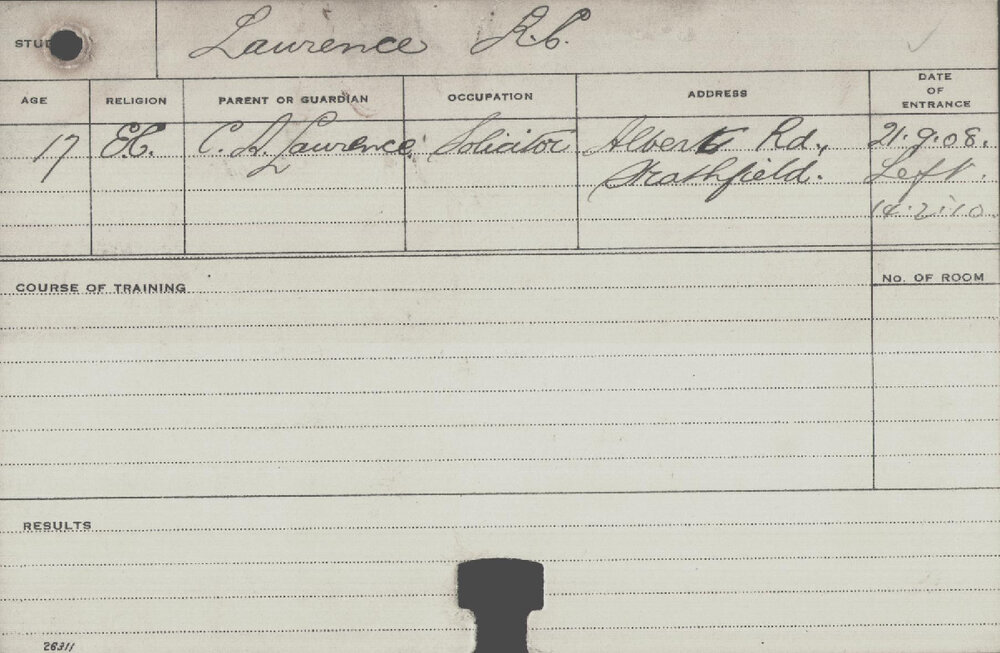 STU
Lawrence R.C.
AGE
RELIGION
PARENT OR GUARDIAN
OCCUPATION
ADDRESS
DATE
OF
ENTRANCE
17 E.C. C. A. Lawrence Solicitor Albert Rd., 21.9.08.
Strathfield. Left.
14.2.10
COURSE OF TRAINING
No. OF ROOM
RESULTS
26311